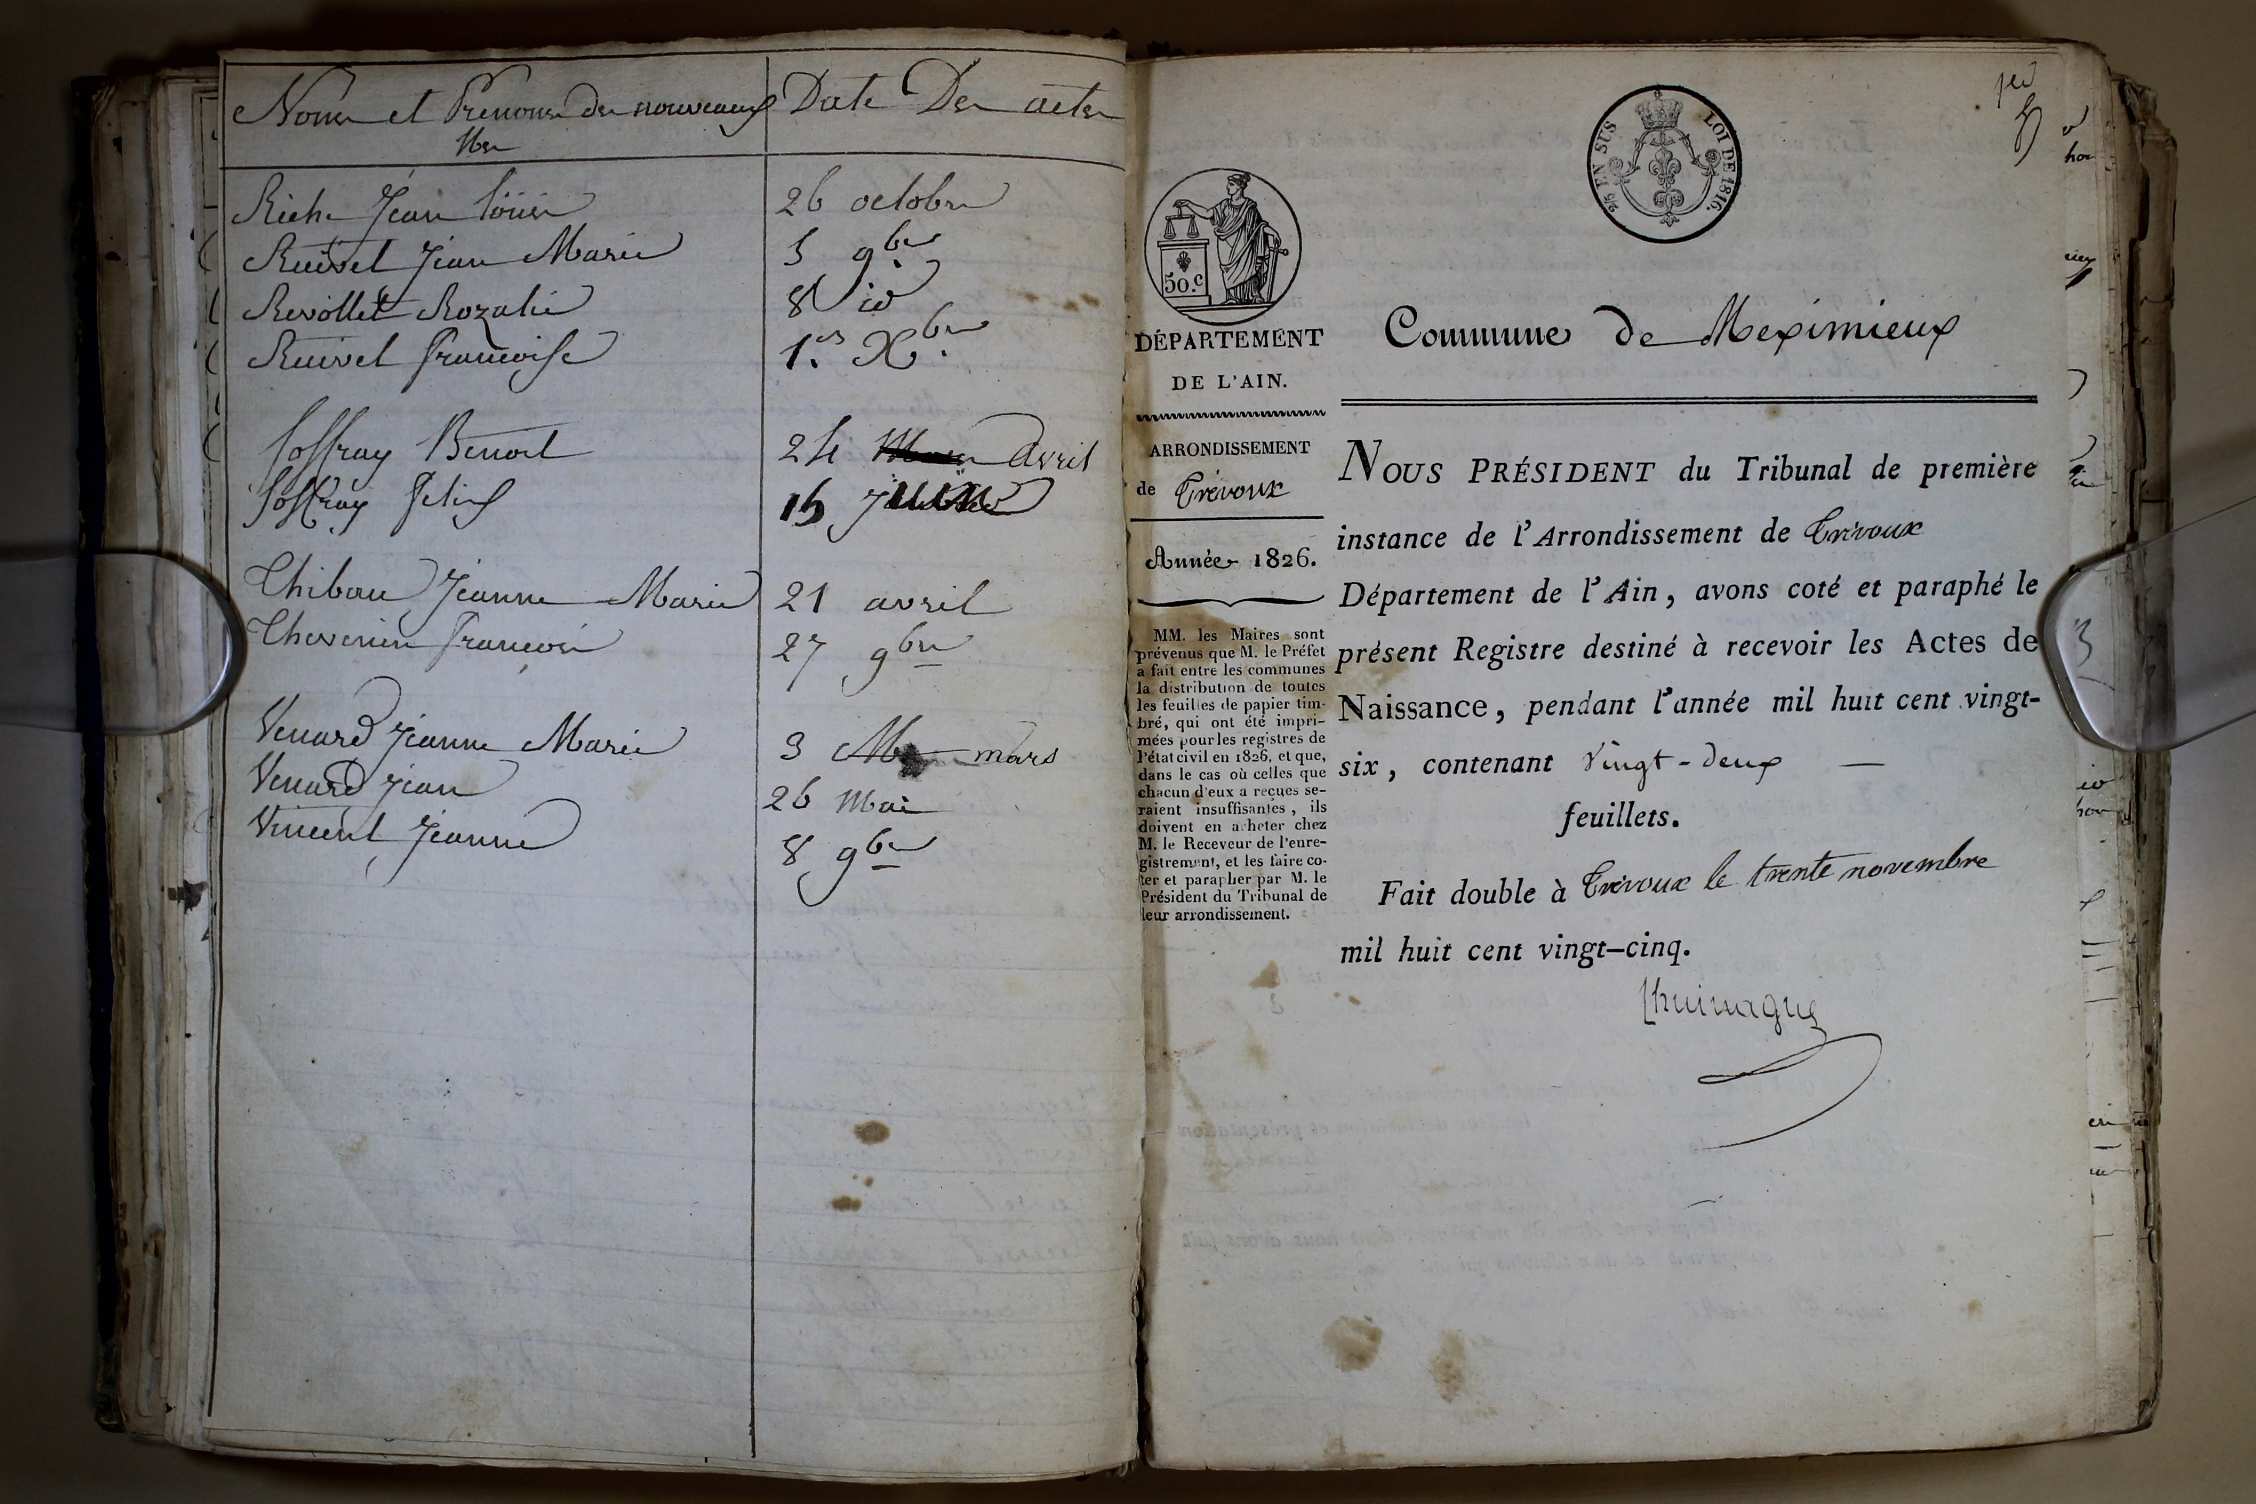 Noms et Prenoms des nouveaux Date Des actes
Nés
Riche Jean Louis 26 octobre
Ruivet Jean Marie 5 9bre
Revollet Rozalie 8 id
Ruivet francoise 1er Xbre
Soffray Benoit 24 avril
Soffray felix 15
Thibau Jeanne Marie 21 avril
Thevenin francois 27 9bre
Venard Jeanne Marie 3 mars
Venard Jean 26 Mai
Vincent Jeanne 8 9bre
25 EN SUS LOI DE 1816.
50.c
DÉPARTEMENT
DE L'AIN.
ARRONDISSEMENT
de Trévoux
Année 1826.
MM. les Maires sont
prévenus que M. le Préfet
a fait entre les communes
la distribution de toutes
les feuilles de papier tim-
bré, qui ont été impri-
mées pour les registres de
l'état civil en 1826, et que,
dans le cas où celles que
chacun d'eux a reçues se-
raient insuffisantes, ils
doivent en acheter chez
M. le Receveur de l'enre-
gistrement, et les faire co-
ter et parapher par M. le
Président du Tribunal de
leur arrondissement.
Commune de Meximieux
NOUS PRÉSIDENT du Tribunal de première
instance de l'Arrondissement de Trévoux
Département de l'Ain, avons coté et paraphé le
présent Registre destiné à recevoir les Actes de
Naissance, pendant l'année mil huit cent vingt-
six, contenant vingt-deux —
feuillets.
Fait double à Trévoux le trente novembre
mil huit cent vingt-cinq.